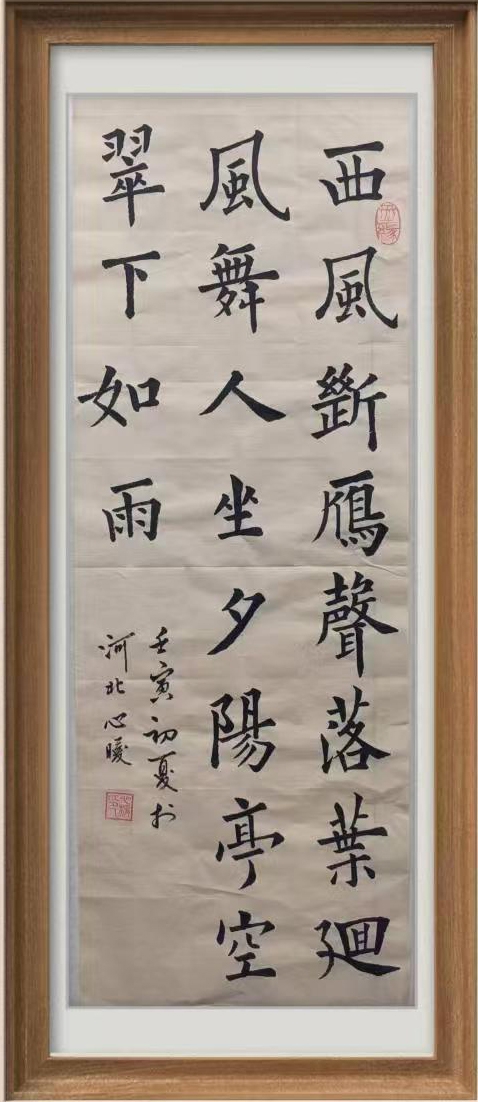 西風斷鴈聲落葉廻
風舞人坐夕陽亭空
翠下如雨
壬寅初夏於
河北心暖